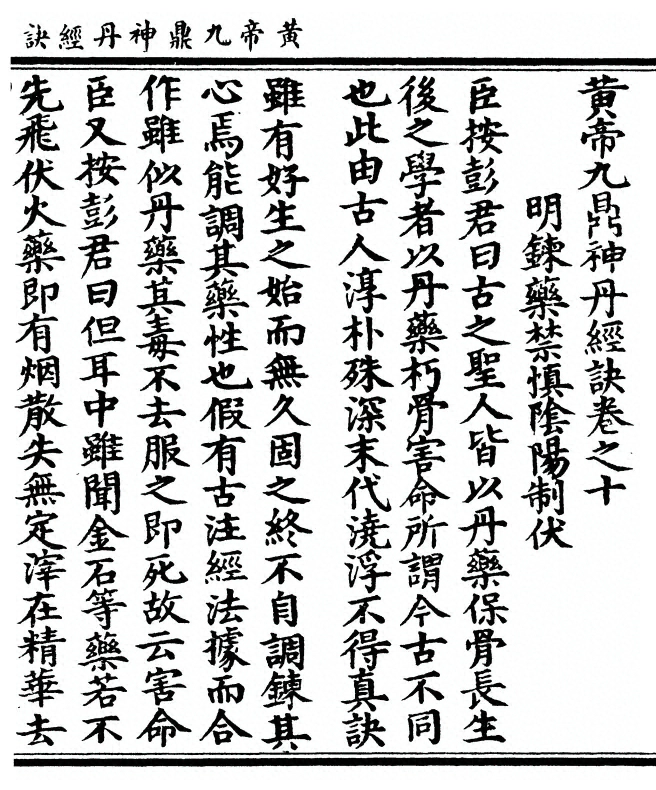 黃帝九鼎神丹經訣
黃帝九鼎神丹經訣卷之十
明鍊藥禁慎陰陽制伏
臣按彭君曰古之聖人皆以丹藥保骨長生
後之學者以丹藥朽骨害命所謂今古不同
也此由古人淳朴殊深末代澆浮不得真訣
雖有好生之始而無久固之終不自調鍊其
心焉能調其藥性也假有古注經法據而合
作雖似丹藥其毒不去服之即死故云害命
臣又按彭君曰但耳中雖聞金石等藥若不
先飛伏火藥即有烟散失無定滓在精華去